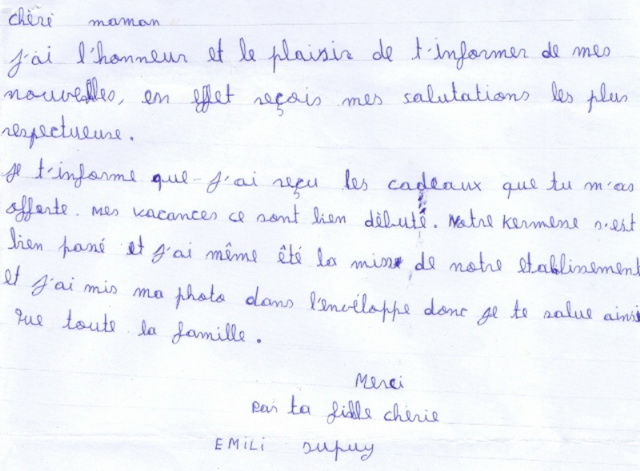 chèri maman
j'ai l'honneur et le plaisir de t'informer de mes
nouvelles, en effet reçois mes salutations les plus
respectueuse.
je t'informe que j'ai reçu les cadeaux que tu m'as
offerte. Mes vacances ce sont bien débuté. Notre Kermesse s'est
bien passé et j'ai même êté la miss de notre etablissement
et j'ai mis ma photo dans l'enveloppe donc je te salue ainsi
que toute la famille.
Merci
Par ta fille chèrie
EMILI Dupuy